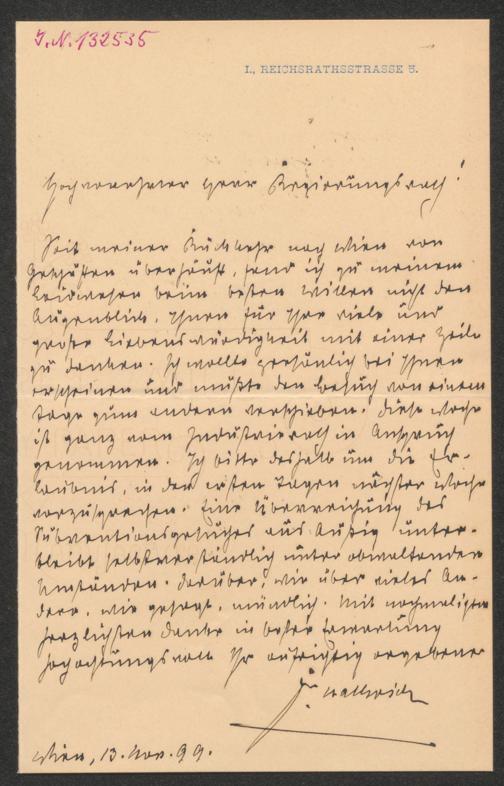 J.N. 132535
I., REICHSRATHSSTRASSE 5.
Hochverehrter Herr Regierungsrath!
Seit meiner Rückkehr nach Wien von
Geschäften überhäuft, fand ich zu meinem
Leidwesen beim besten Willen nicht den
Augenblick, Ihnen für Ihre viele und
große Liebenswürdigkeit mit einer Zeile
zu danken. Ich wollte persönlich bei Ihnen
erscheinen und mußte den Besuch von einem
Tage zum andern verschieben. Diese Woche
ist ganz vom Industrierath in Anspruch
genommen. Ich bitte deshalb um die Er-
laubnis, in den ersten Tagen nächster Woche
vorzusprechen. Eine Überreichung des
Subventionsgesuches aus Aussig unter-
bleibt selbstverständlich unter obwaltenden
Umständen. Darüber, wie über vieles An-
dere, wie gesagt, mündlich. Mit nochmaligem
herzlichsten Danke in bester Erwartung
hochachtungsvoll Ihr aufrichtig ergebener
Hallwich
Wien, 13. Nov. 99.